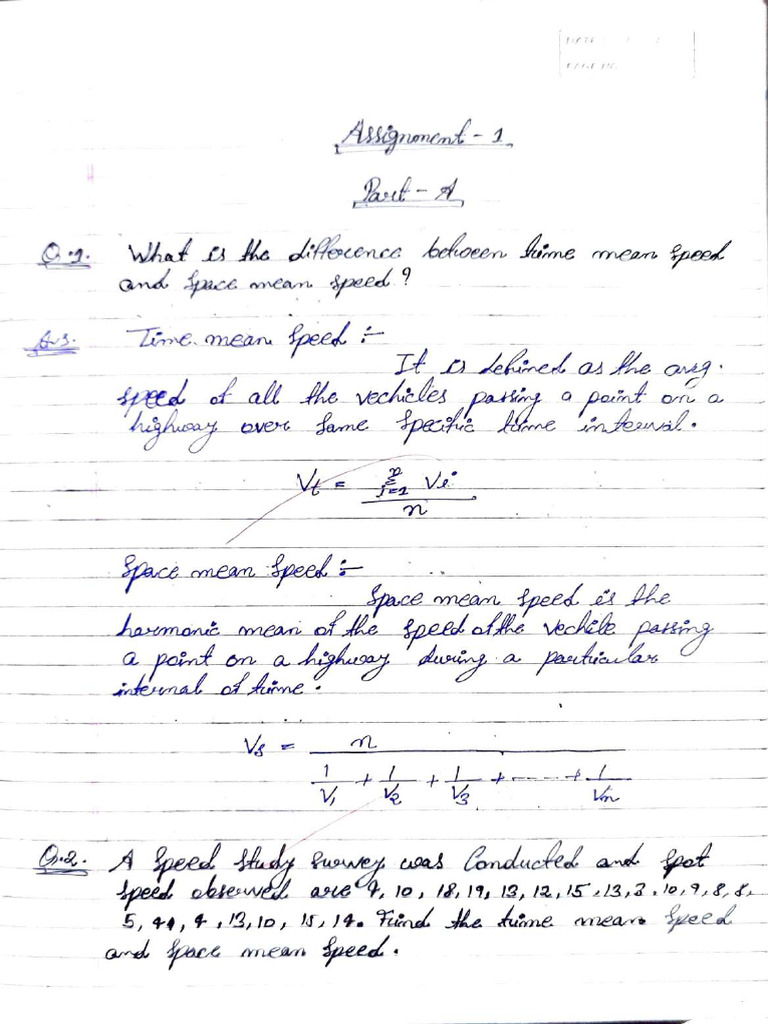 DATE
PAGE NO.
Assignment - 1
Part - A
Q.1. What is the difference between time mean speed
and space mean speed ?
Ans. Time mean speed :-
It is defined as the avg.
speed of all the vechicles passing a point on a
highway over some specific time interval.
Vt = Σ i=1 n Vi / n
Space mean speed :-
Space mean speed is the
harmonic mean of the speed of the vechile passing
a point on a highway during a particular
internal of time.
Vs = n / (1/V1 + 1/V2 + 1/V3 + ------ + 1/Vn)
Q.2. A speed study survey was Conducted and spot
speed observed are 10, 18, 19, 13, 12, 15, 13, 3, 10, 9, 8, 8,
5, 13, 10, 15, 14. Find the time mean speed
and space mean speed.